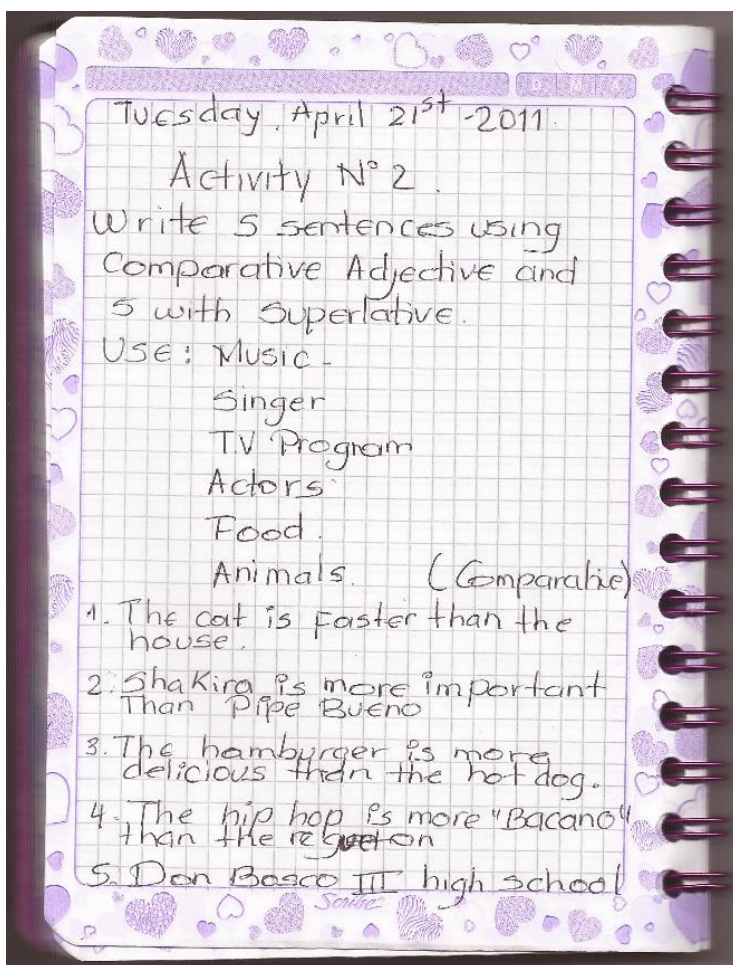 D M A
Tuesday, April 21st -2011.
Activity N° 2.
Write 5 sentences using
Comparative Adjective and
5 with Superlative.
Use: Music -
Singer
T.V Program
Actors.
Food.
Animals. (Comparative)
1. The cat is faster than the
house.
2. Shakira is more important
Than Pipe Bueno
3. The hamburger is more
delicious than the hot dog.
4. The hip hop is more "Bacano"
than the regueton
5. Don Bosco III high school
Scribe